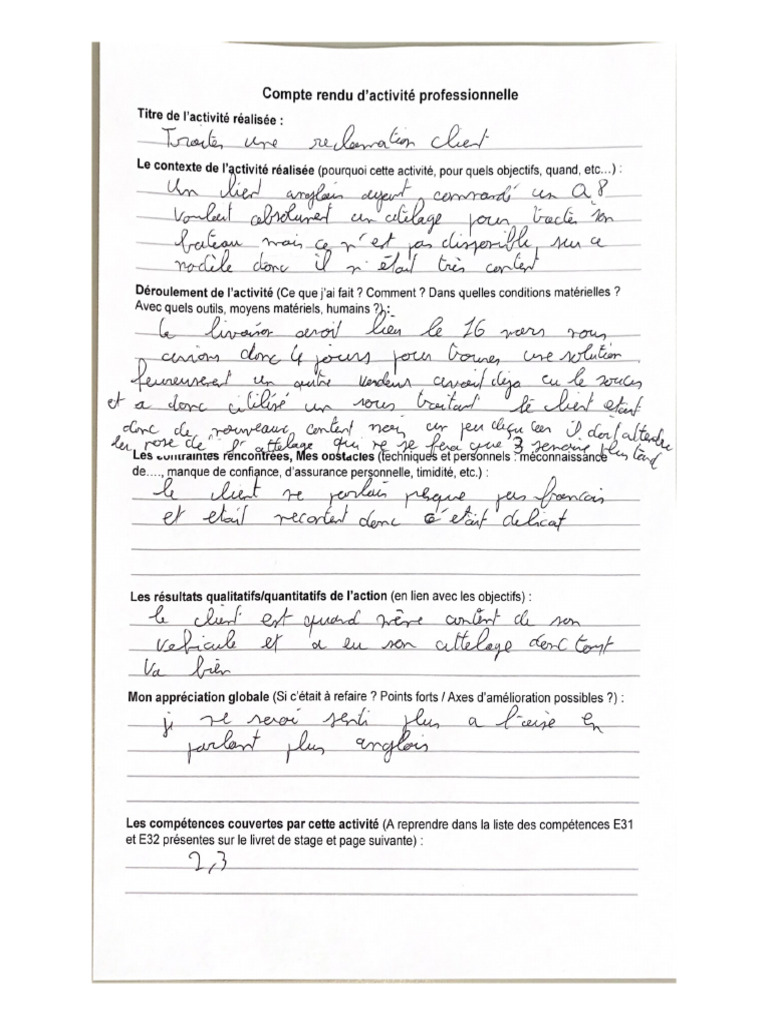 Compte rendu d'activité professionnelle
Titre de l'activité réalisée :
Traiter une reclamation client
Le contexte de l'activité réalisée (pourquoi cette activité, pour quels objectifs, quand, etc...) :
Un client anglais ayant commandé un Q8
voulait absolument un attelage pour tracter son
bateau mais ce n'est pas disponible sur ce
modèle donc il n'était très content
Déroulement de l'activité (Ce que j'ai fait ? Comment ? Dans quelles conditions matérielles ?
Avec quels outils, moyens matériels, humains ?) :
la livraison serait lieu le 16 mars nous
avions donc 4 jours pour trouver une solution
heureusement un autre vendeur avait deja eu le soucis
et a donc utilisé un sous traitant le client etait
donc de nouveaux content mais un peu deçu car il doit attendre
la pose de l'attelage qui ne se fera que 3 semaine plus tard
Les contraintes rencontrées, Mes obstacles (techniques et personnels : méconnaissance
de...., manque de confiance, d'assurance personnelle, timidité, etc.) :
le client ne parlais presque pas francais
et etait mecontent donc c'etait delicat
Les résultats qualitatifs/quantitatifs de l'action (en lien avec les objectifs) :
le client est quand même content de son
vehicule et a eu son attelage donc tout
va bien
Mon appréciation globale (Si c'était à refaire ? Points forts / Axes d'amélioration possibles ?) :
je me serai senti plus a l'aise en
parlant plus anglais
Les compétences couvertes par cette activité (A reprendre dans la liste des compétences E31
et E32 présentes sur le livret de stage et page suivante) :
2,3